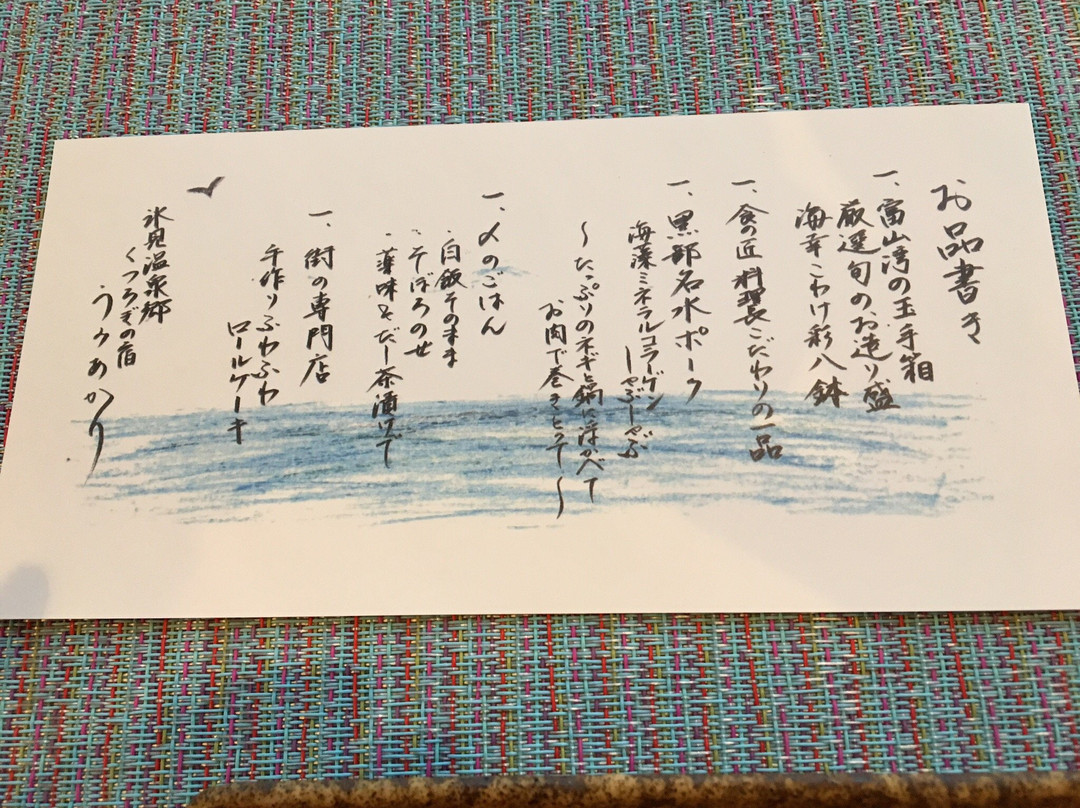 お品書き
一、富山湾の玉手箱
厳選旬のお造り盛
海幸こわけ彩八鉢
一、食の匠 料理長こだわりの一品
一、黒部名水ポーク
海藻ミネラルコラーゲン
しゃぶしゃぶ
〜たっぷりのネギと鍋に浮かべて
お肉で巻きとって〜
一、〆のごはん
・白飯そのまま
・そぼろのせ
・薬味とだし茶漬けで
一、街の専門店
手作りふわふわ
ロールケーキ
氷見温泉郷
くつろぎの宿
うみあかり